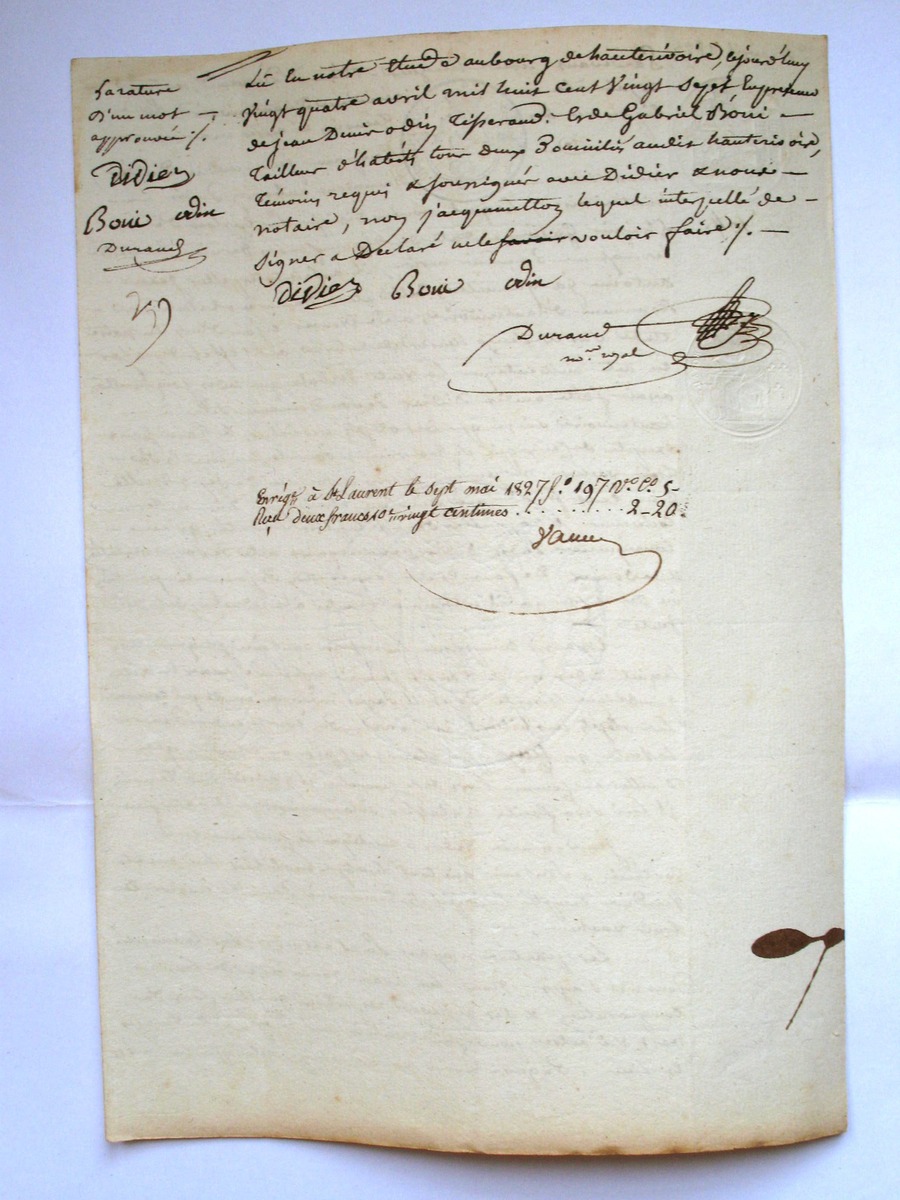 La rature
D'un mot —
approuvée ./.
Didier
Boui odin
Durand
Lu En notre Etude au bourg de hauterivoire, cejourd'huy
Vingt quatre avril mil huit cent Vingt Sept En presence
de jean Denis odin Tisserand. Et de Gabriel Boui —
Tailleur d'habits tous deux Domiciliés audit hauterivoire,
Temoins requis & soussignés avec Didier & nous —
notaire, non jacquemetton lequel interpellé de —
signer a Declaré ne le savoir vouloir faire ./. —
Didier Boui odin
Durand
n.re royal
Enrég.é à St Laurent le sept mai 1827 f.o 197 V.o C.o 5-
Reçu deux francs 10.e vingt centimes . . . . . . . . . 2-20